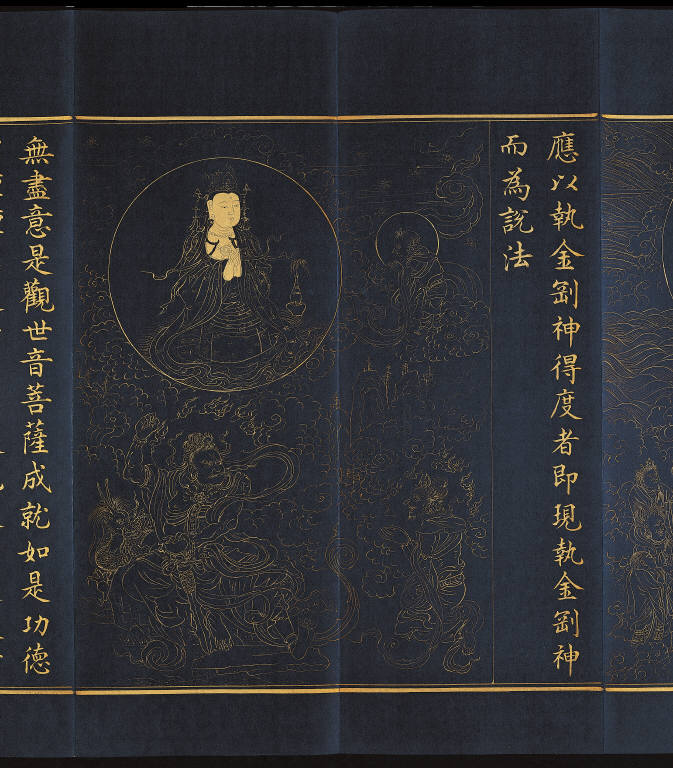 應以執金剛神得度者即現執金剛神
而為說法
無盡意是觀世音菩薩成就如是功德